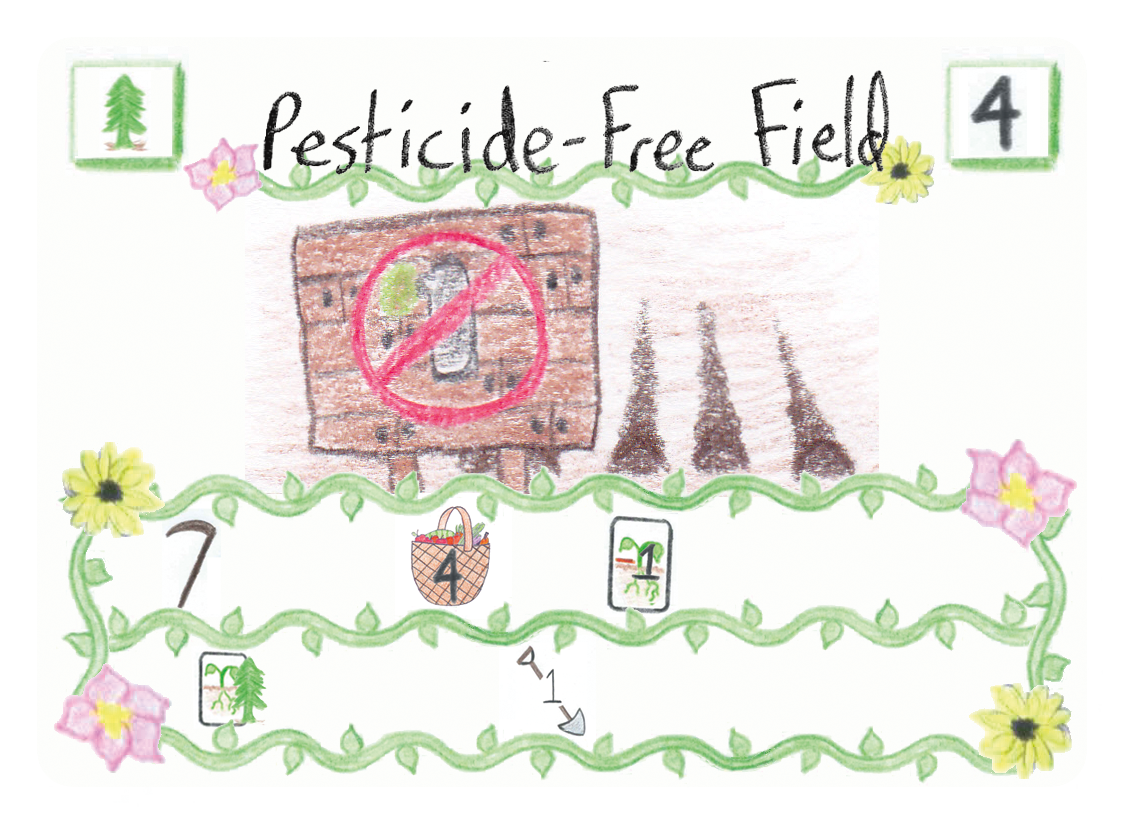 Pesticide-Free Field 4
7 4 -1
1